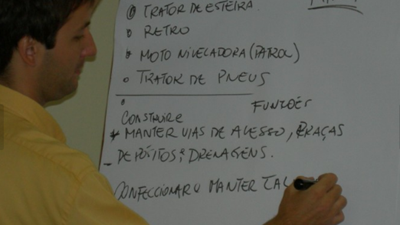 TRATOR DE ESTEIRA.
RETRO
MOTO NIVELADORA (PATROL)
TRATOR DE PNEUS
FUNÇÕES
CONSTRUIR
MANTER VIAS DE ACESSO, PRAÇAS
DEPÓSITOS E DRENAGENS.
CONFECCIONAR MANTER